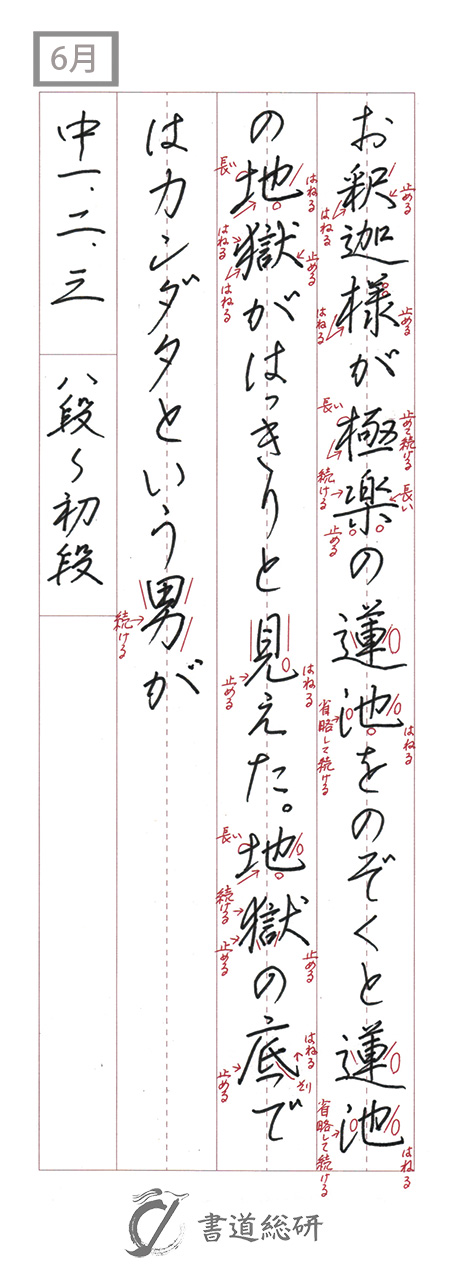 6月
お釈迦様が極楽の蓮池をのぞくと蓮池
の地獄がはっきりと見えた。地獄の底で
はカンダタという男が
中一、二、三
八段〜初段
止める
はねる
止める
はねる
止めて続ける
長い
長い
続ける
止める
はねる
省略して続ける
はねる
省略して続ける
はねる
長い
止める
はねる
はねる
はねる
止める
長い
続ける
止める
止める
はねる
そり
止める
続ける
書道総研